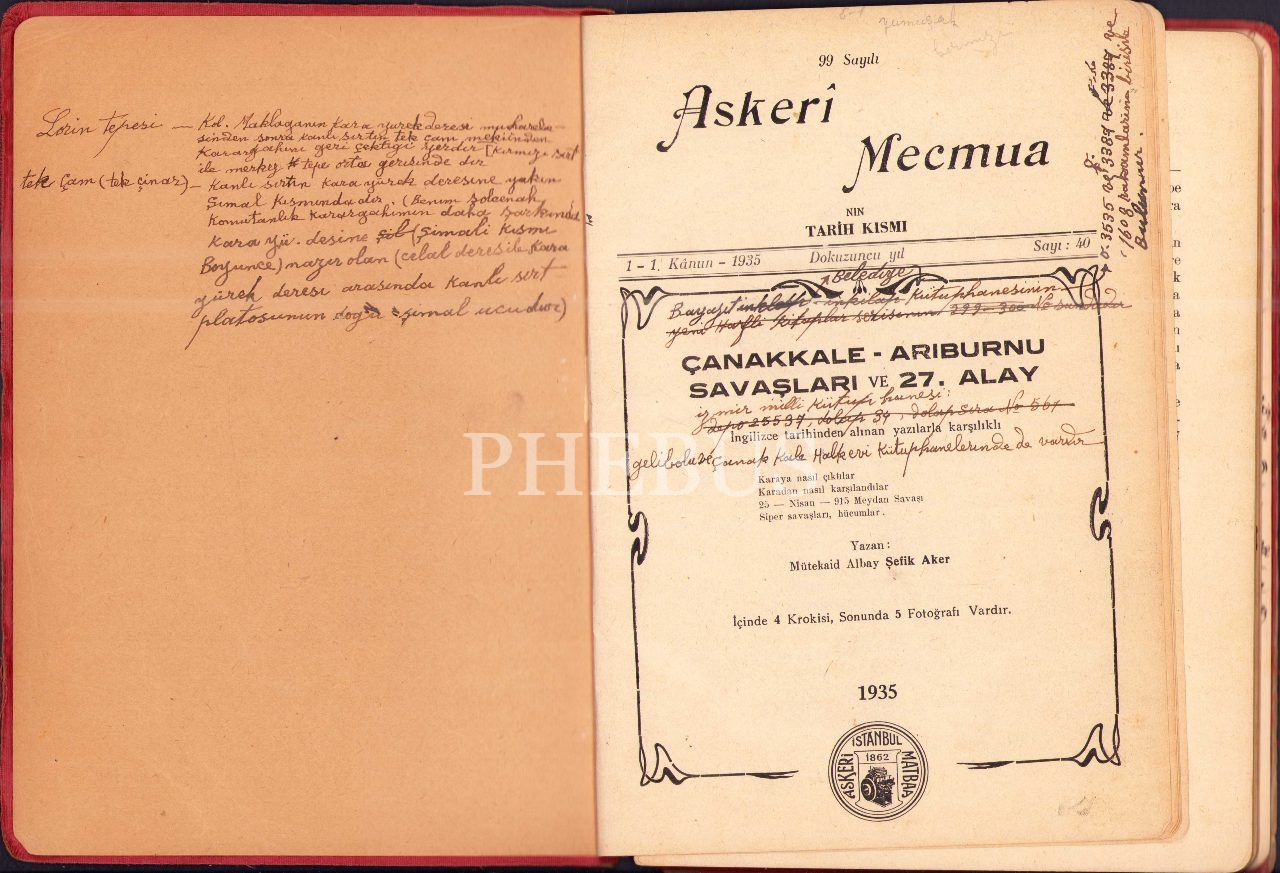 Lorin tepesi — Kol. Maklaganın Kara yürek deresi muharebe-
sinden sonra kanlı sırtın tek çam mekiinden
Karargahını geri çektiği yerdir [Kırmızı sırt
ile merkez tepe orta gerisinde dir
tek Çam (tek çınar) — Kanlı sırtın Kara yürek deresine yakın
Şimal Kısmındadır. (Benim solcenah
Komutanlık Karargahımın daha şarkında
Kara yü. desine (Şimali Kısmı
Boyunce) nazır olan (celal deresile, Kara
yürek deresi arasında Kanlı sırt
platosunun doğu = şimal ucudur)
99 Sayılı
Askerî
Mecmua
NIN
TARİH KISMI
1 - 1. Kânun - 1935 Dokuzuncu yıl Sayı : 40
Belediye
Bayazıt inkılap Kütuphanesinin
yeni Harfli Kituplar serisinin 299-300 No sunda dır
ÇANAKKALE - ARIBURNU
SAVAŞLARI VE 27. ALAY
izmir milli Kütuphanesi:
depo 25537, dolap 34, dolap sıra No 561
İngilizce tarihinden alınan yazılarla karşılıklı
gelibolu ve Çanak Kale Halkevi Kütuphanelerinde de vardır
Karaya nasıl çıktılar
Karadan nasıl karşılandılar
25 — Nisan — 915 Meydan Savaşı
Siper savaşları, hücumlar.
Yazan :
Mütekaid Albay Şefik Aker
İçinde 4 Krokisi, Sonunda 5 Fotoğrafı Vardır.
1935
İSTANBUL
ASKERİ MATBAA
1862
3535 ve 3389 ve 3387 ve
1608 rakamlarının birisile
Bulunur.
yumuşak
kırmızı
PHEBUS